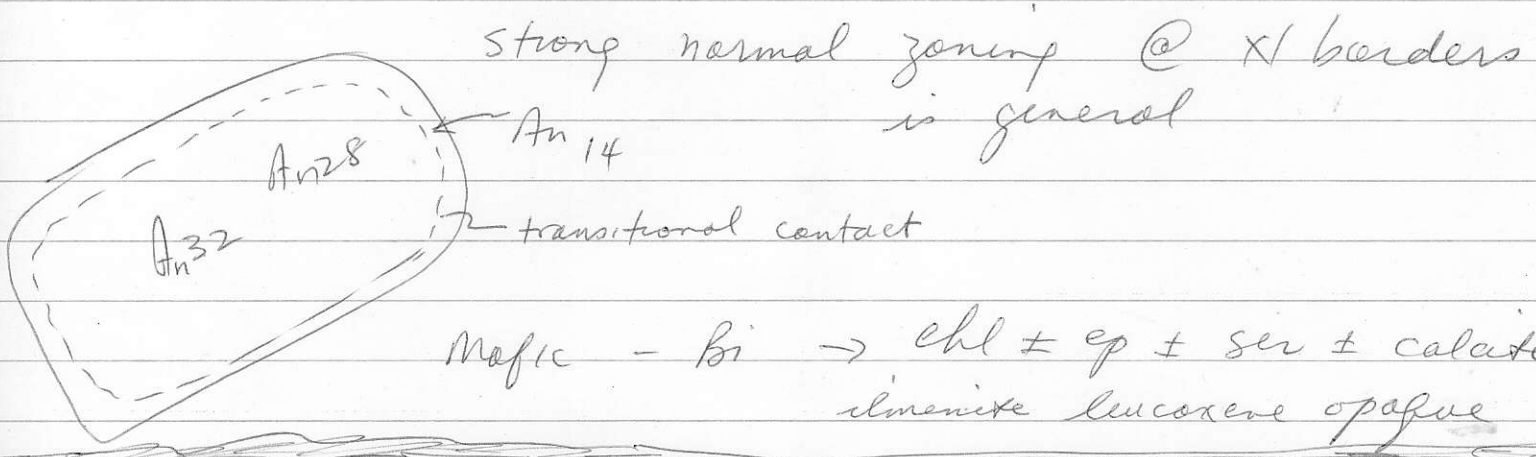 strong normal zoning @ xl borders
is general
An 14
An28
transitional contact
An32
Mafic - Bi → chl ± ep ± ser ± calcite
ilmenite leucoxene opaque